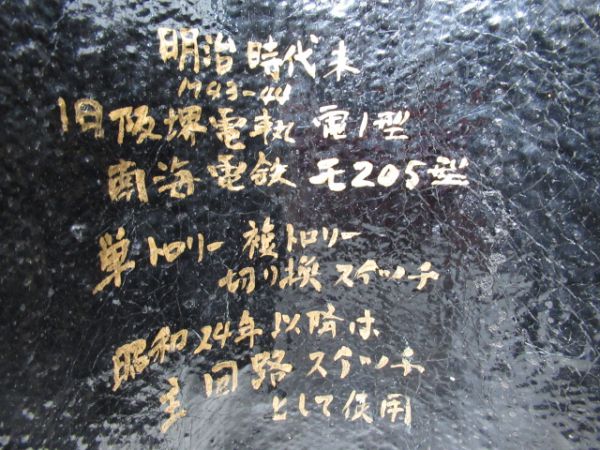 明治時代末
M43-44
旧阪堺電軌 電1型
南海電鉄 モ205型
単トロリー 複トロリー
切り換スイッチ
昭和24年以降は
主回路スイッチ
として使用